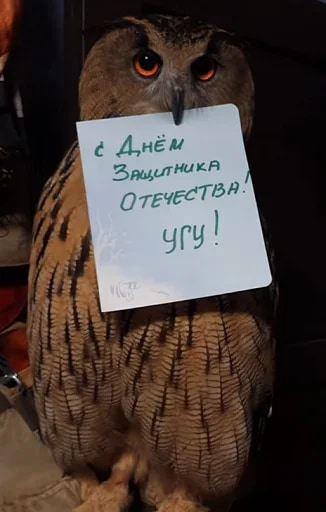 с Днём
Защитника
Отечества!
УГУ!